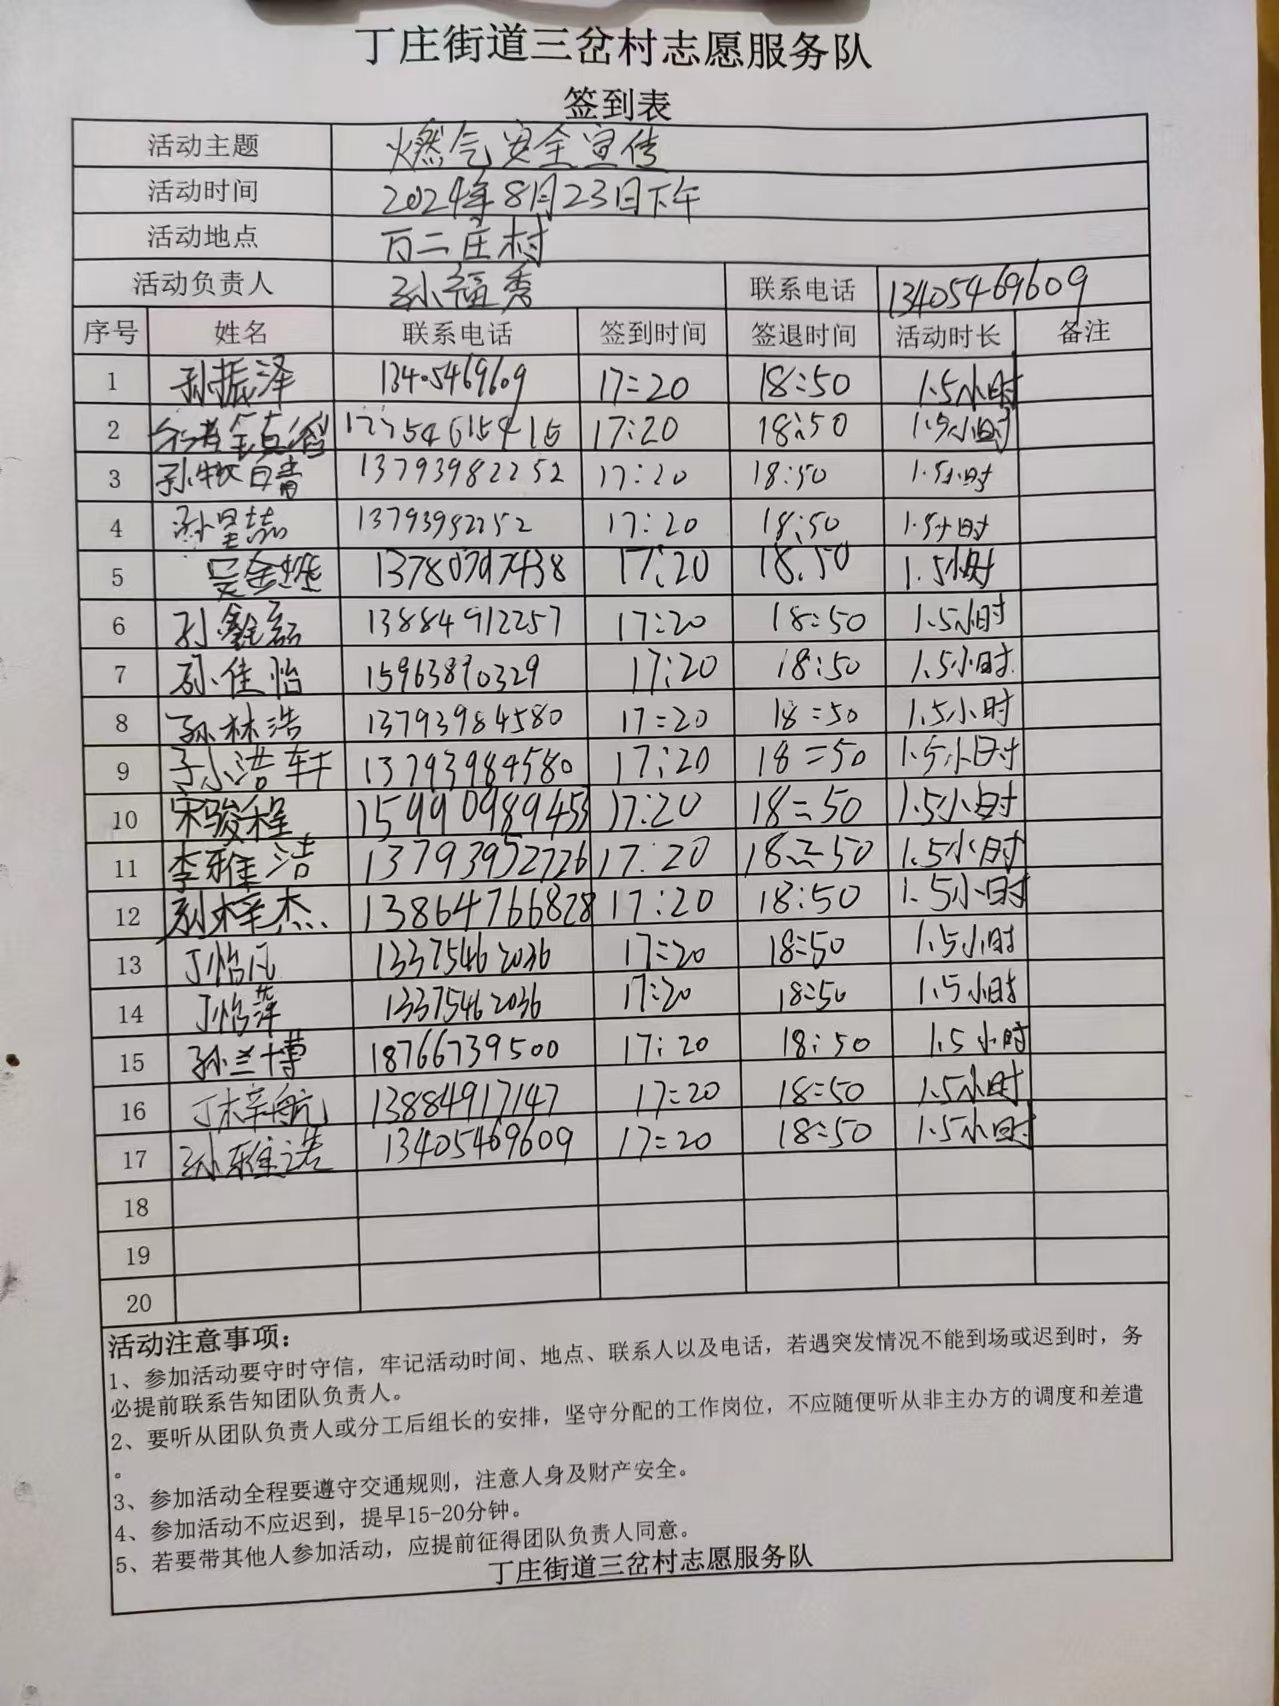 丁庄街道三岔村志愿服务队
签到表
活动主题 燃气安全宣传
活动时间 2024年8月23日下午
活动地点 百二庄村
活动负责人 孙福秀 联系电话 13405469609
序号 姓名 联系电话 签到时间 签退时间 活动时长 备注
1 孙振泽 13405469609 17:20 18:50 1.5小时
2 17:20 18:50 1.5小时
3 13793982252 17:20 18:50 1.5小时
4 13793982252 17:20 18:50 1.5小时
5 17:20 18:50 1.5小时
6 孙鑫磊 13884912257 17:20 18:50 1.5小时
7 孙佳怡 15963890329 17:20 18:50 1.5小时
8 孙林浩 13793984580 17:20 18:50 1.5小时
9 孙浩轩 13793984580 17:20 18:50 1.5小时
10 宋骏程 15990989455 17:20 18:50 1.5小时
11 李雅洁 13793952726 17:20 18:50 1.5小时
12 孙梓杰 13864766828 17:20 18:50 1.5小时
13 丁怡凡 13375462036 17:20 18:50 1.5小时
14 丁怡萍 13375462036 17:20 18:50 1.5小时
15 孙兰博 18766739500 17:20 18:50 1.5小时
16 丁梓航 13884917147 17:20 18:50 1.5小时
17 孙雅诺 13405469609 17:20 18:50 1.5小时
18
19
20
活动注意事项：
1、参加活动要守时守信，牢记活动时间、地点、联系人以及电话，若遇突发情况不能到场或迟到时，务
必提前联系告知团队负责人。
2、要听从团队负责人或分工后组长的安排，坚守分配的工作岗位，不应随便听从非主办方的调度和差遣
。
3、参加活动全程要遵守交通规则，注意人身及财产安全。
4、参加活动不应迟到，提早15-20分钟。
5、若要带其他人参加活动，应提前征得团队负责人同意。
丁庄街道三岔村志愿服务队